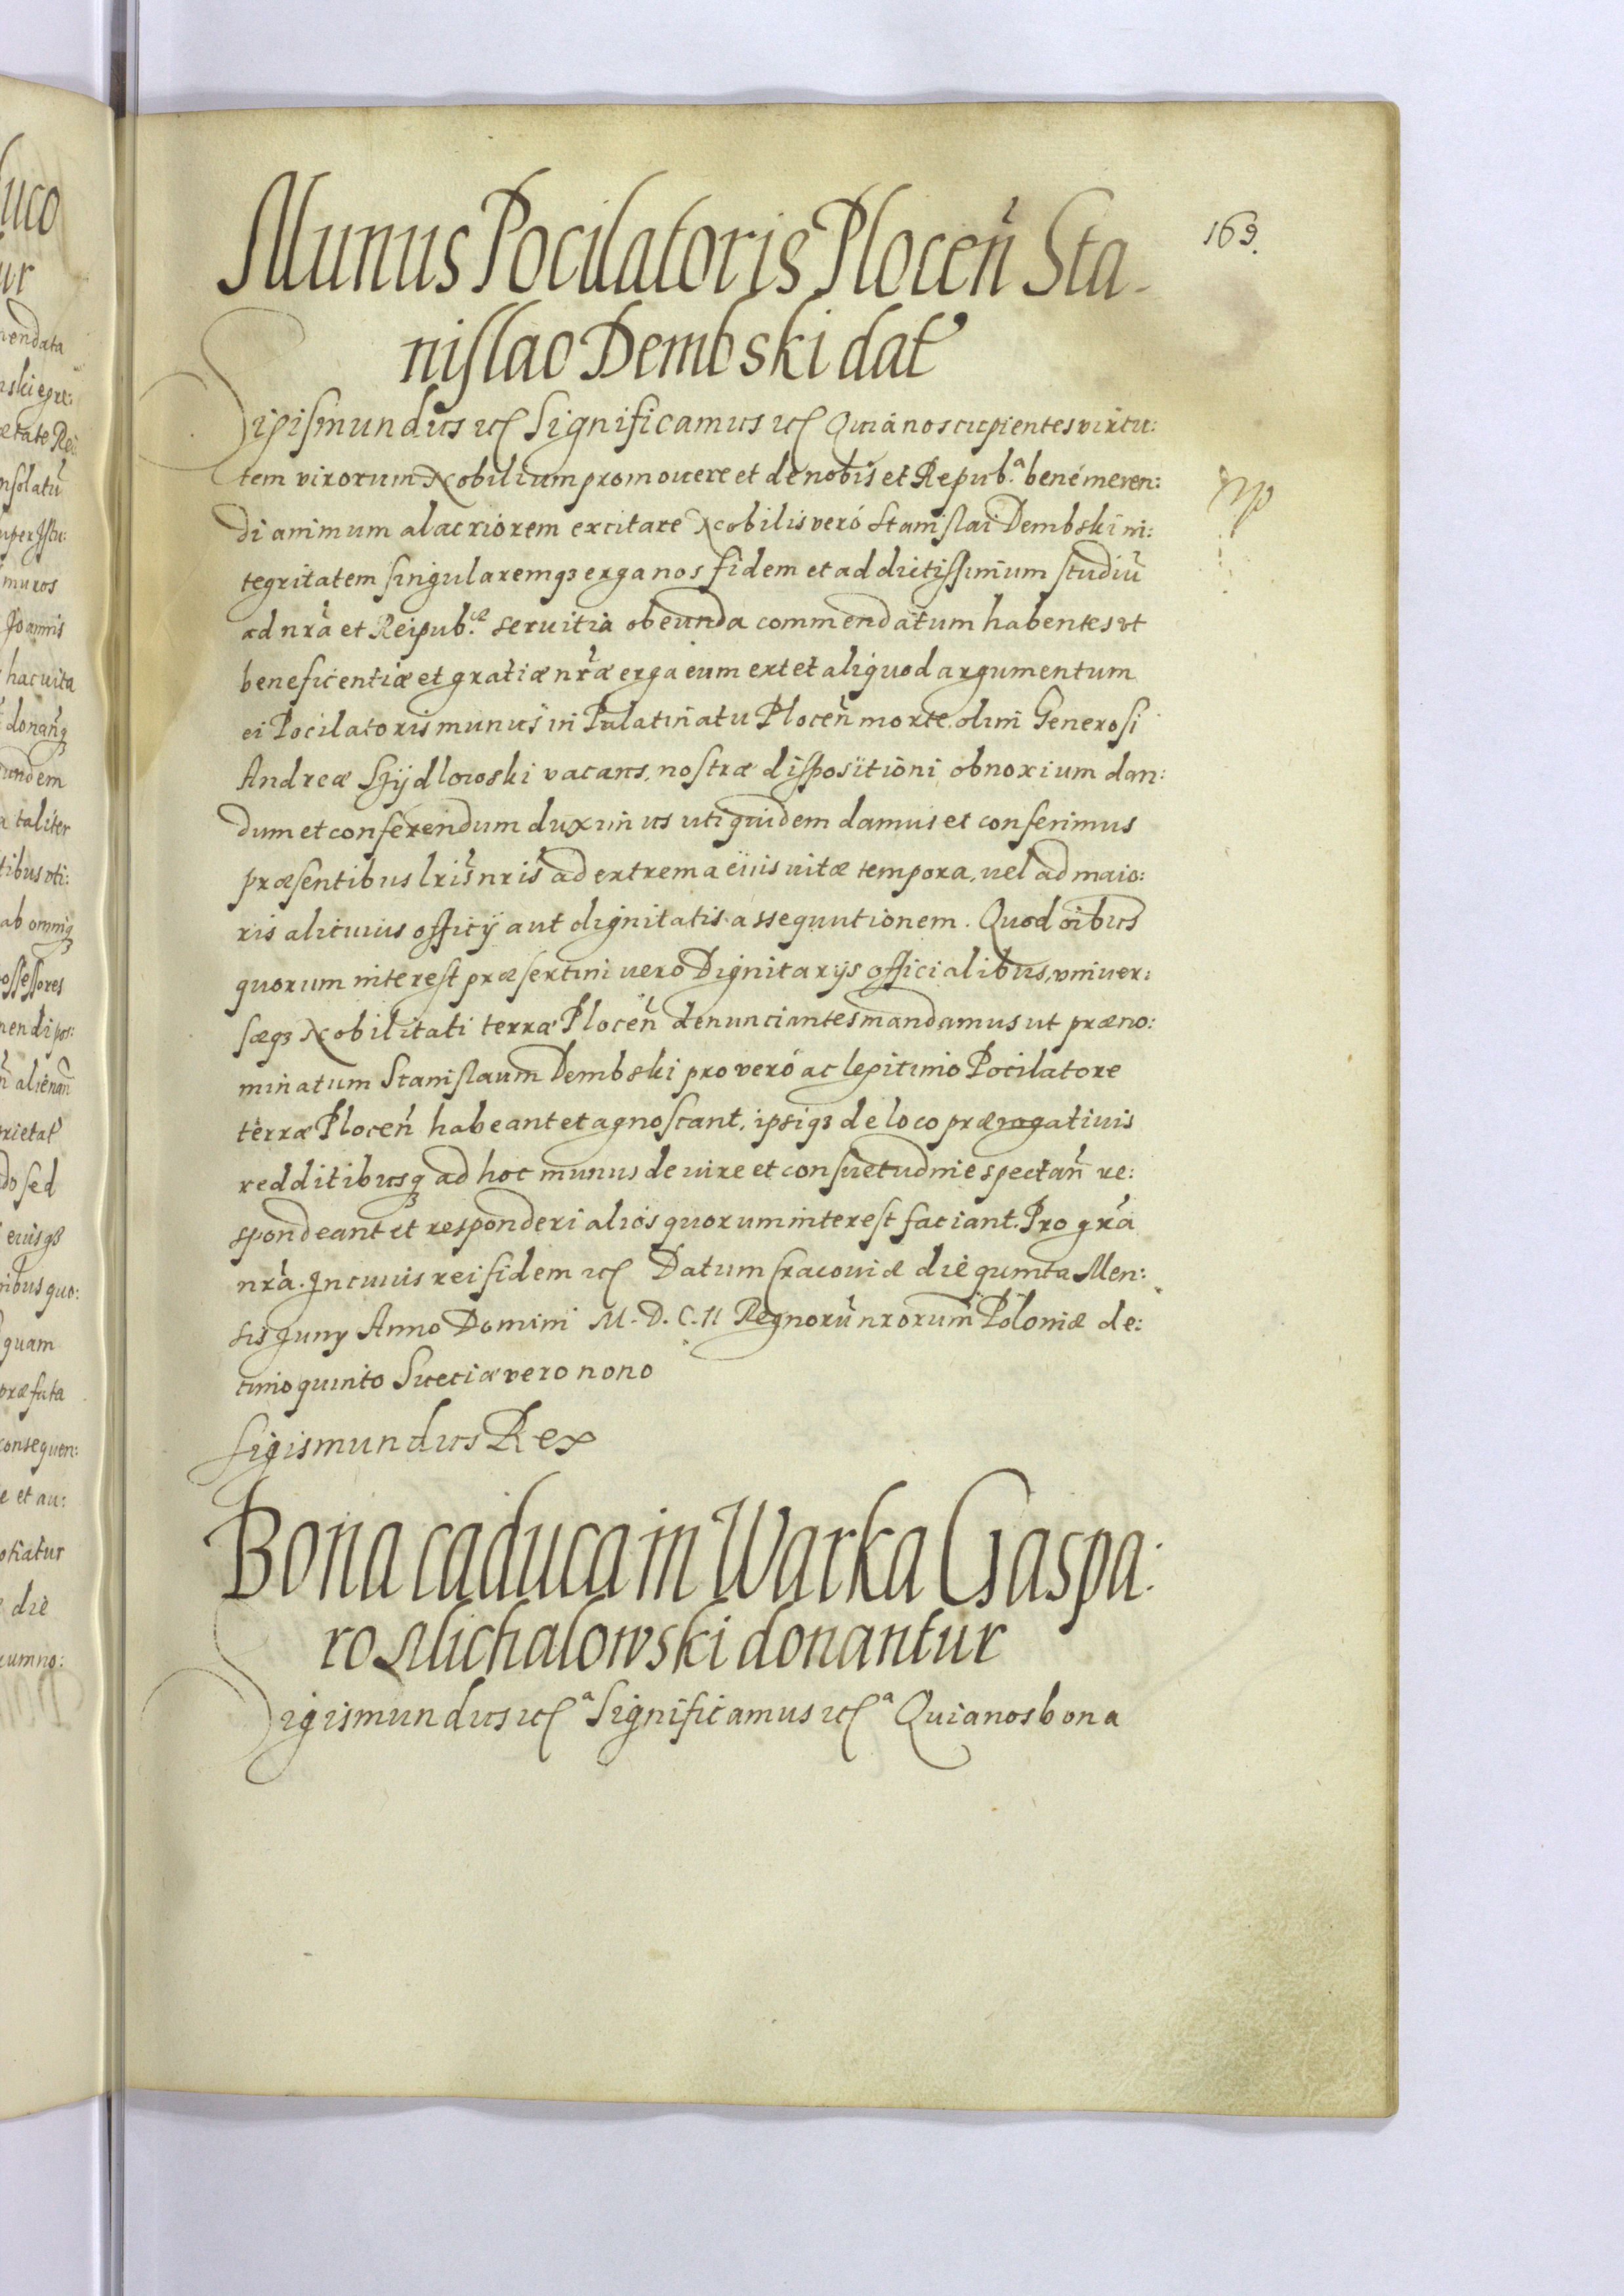 163.
Munus Pocilatoris Plocen̄ Sta-
nislao Dembski dat
Sigismundus etc Significamus etc Quia nos cupientes virtu:
tem virorum Nobilium promouere et de nobis et Repub.ᵃ bene meren:
di animum alacriorem excitare Nobilis veró Stanislai Dembski in:
tegritatem singularemqꝫ erga nos fidem et addictissimum studiū
ad nrā et Reipub.ᶜᵉ seruitia obeunda commendatum habentes vt
beneficentiæ et gratiæ nrǣ erga eum extet aliquod argumentum
ei Pocilatoris munus in Palatinatu Plocen̄ morte olim Generosi
Andreæ Szÿdlowski vacans, nostræ dispositioni obnoxium dan:
dum et conferendum duximus uti quidem damus et conferimus
præsentibus lris̄ nris̄ ad extrema eiius uitæ tempora, uel ad maio:
ris alicuius officÿ aut dignitatis assequutionem. Quod oībus
quorum interest præsertim uero Dignitarÿs officialibus, vniuer:
sæqꝫ Nobilitati terræ Plocen̄ denunciantes mandamus ut præno:
minatum Stanislaum Dembski pro veró ac legitimo Pocilatore
terræ Plocen̄ habeant et agnoscant, ipsiqꝫ de loco prærogatiuis
redditibusqꝫ ad hoc munus de iure et consuetudine spectan̄ re:
spondeant et responderi aliós quorum interest faciant. Pro grā
nrā. In cuuis rei fidem etc Datum Cracouiæ die quinta Men:
sis Iuny Anno Domini M. D. C. II Regnorū nrorum̄ Poloniæ de:
cimo quinto Sueciæ vero nono
Sigismundus Rex
Bona caduca in Warka Gaspa:
ro Michalowski donantur
Sigismundus etcᵃ Significamus etcᵃ Quia nos bona